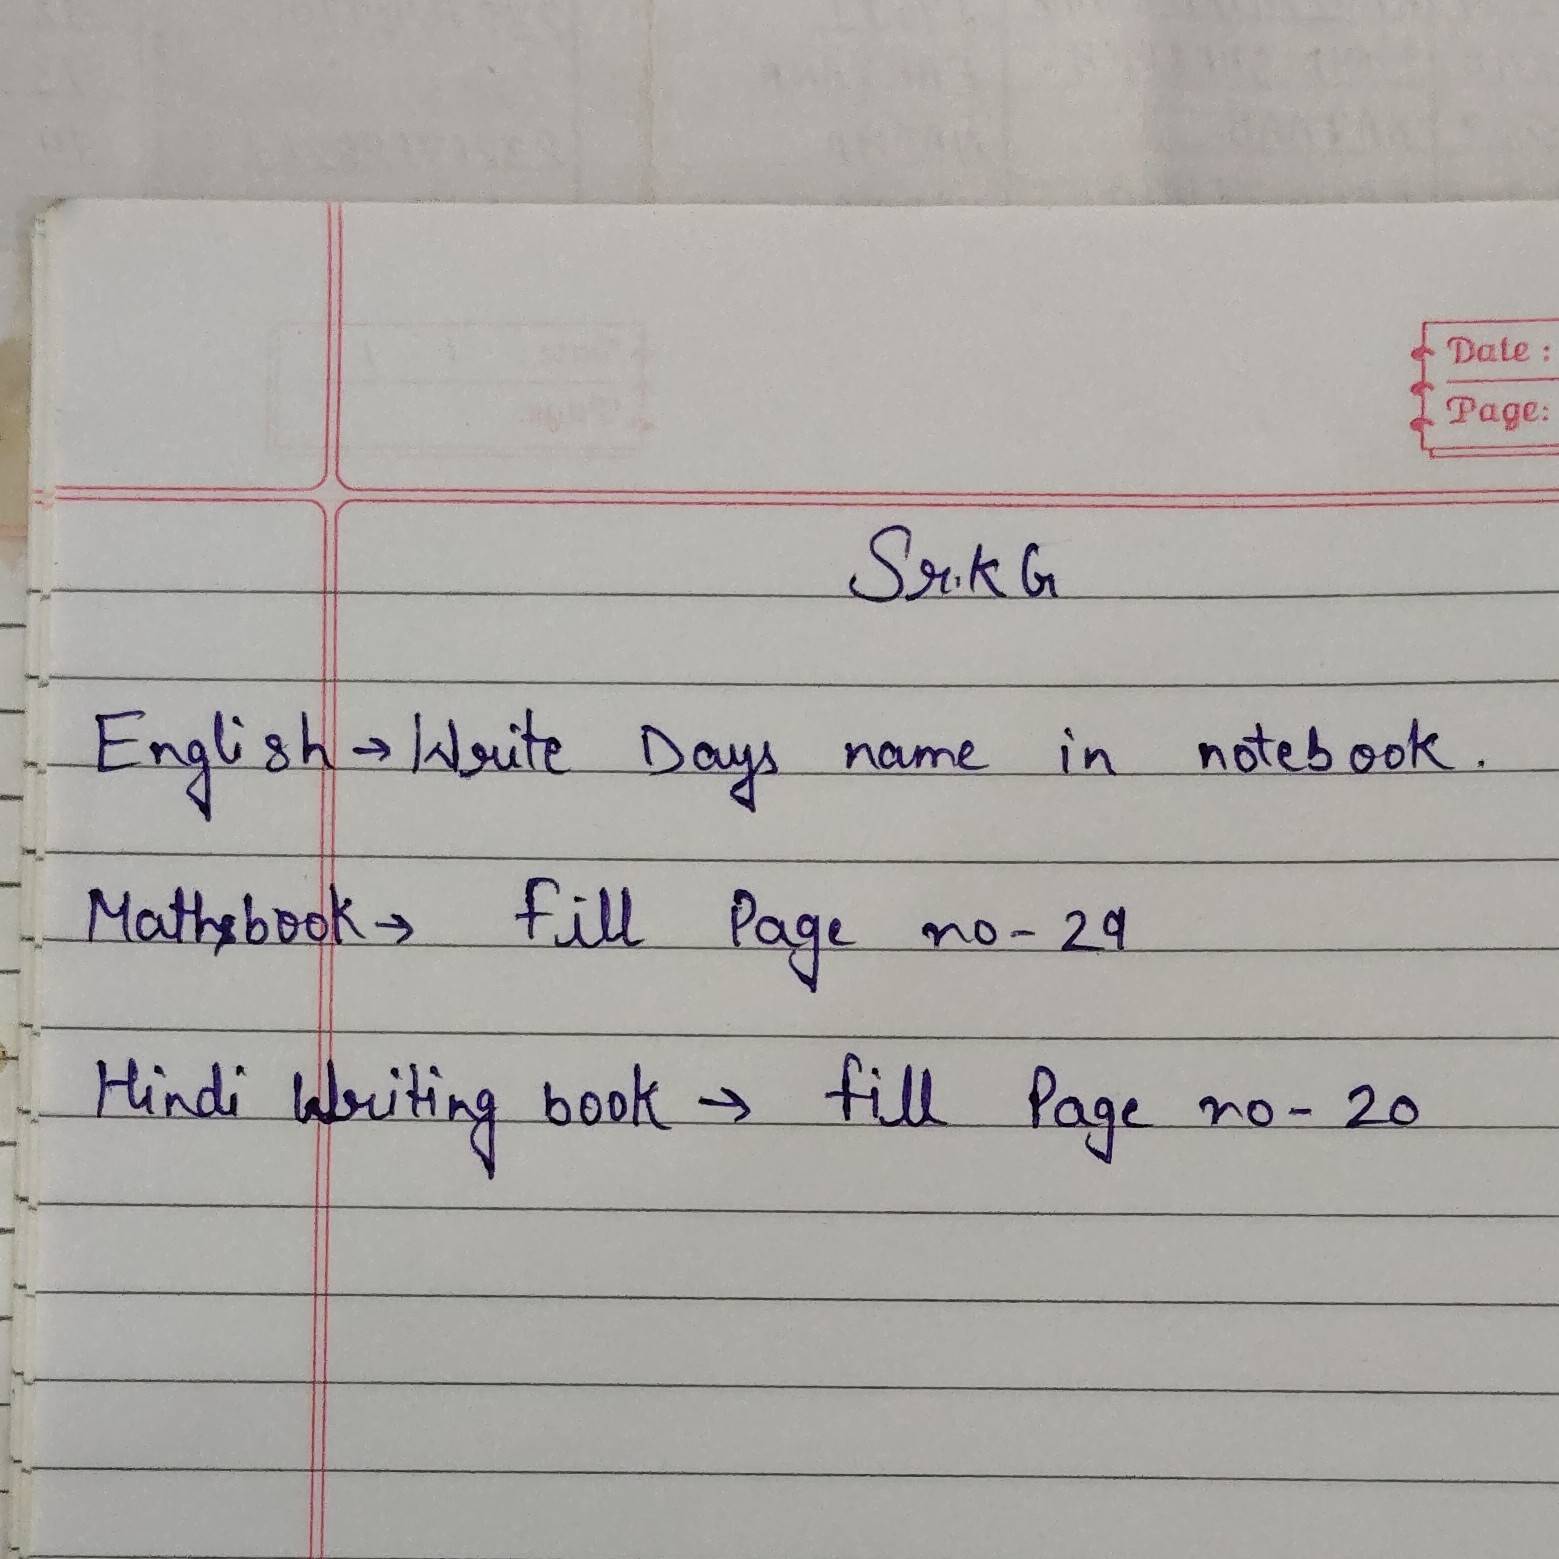 Date :
Page:
Sr.KG
English → Write Days name in notebook.
Mathsbook → fill Page no - 29
Hindi Writing book → fill Page no - 20